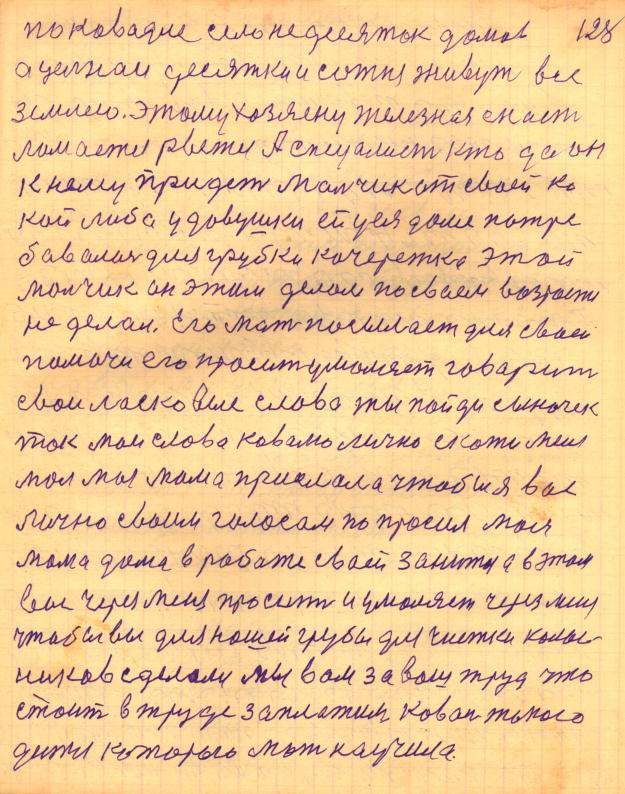 поковадие село не десяток домов 128
а целнаи десятки и сотня живут все
землею. Этому хозяену железная снаст
ломается рветця А специалист кто да он
к нему придет малчик от своей ка
кой либа удовушки ей уся доме потре
бавалас для грубки качережка Этай
молчик он этим делом посваем возрасти
не делал. Его мат посылает для своей
помочи его просит умоляет говарит
свои ласковые слова ты пойди сыночек
так мои слова ковалю лично скажи меня
мол моя мама прислала чтобы я вас
лично своим голосам попросил моя
мома дома в работе своей занита а в этом
вас через меня просит и умоляет через меня
чтобы вы для нашей грубы для чистки колас-
ников сделали мы вам за ваш труд что
стоит в труде заплатим ковал такого
дитя которого мать научила.